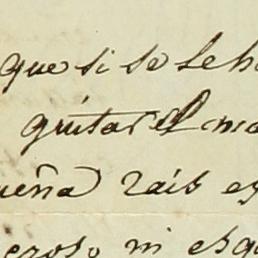 que si se le ha
quitar el mo
ueña rais es
eroso ni esqu